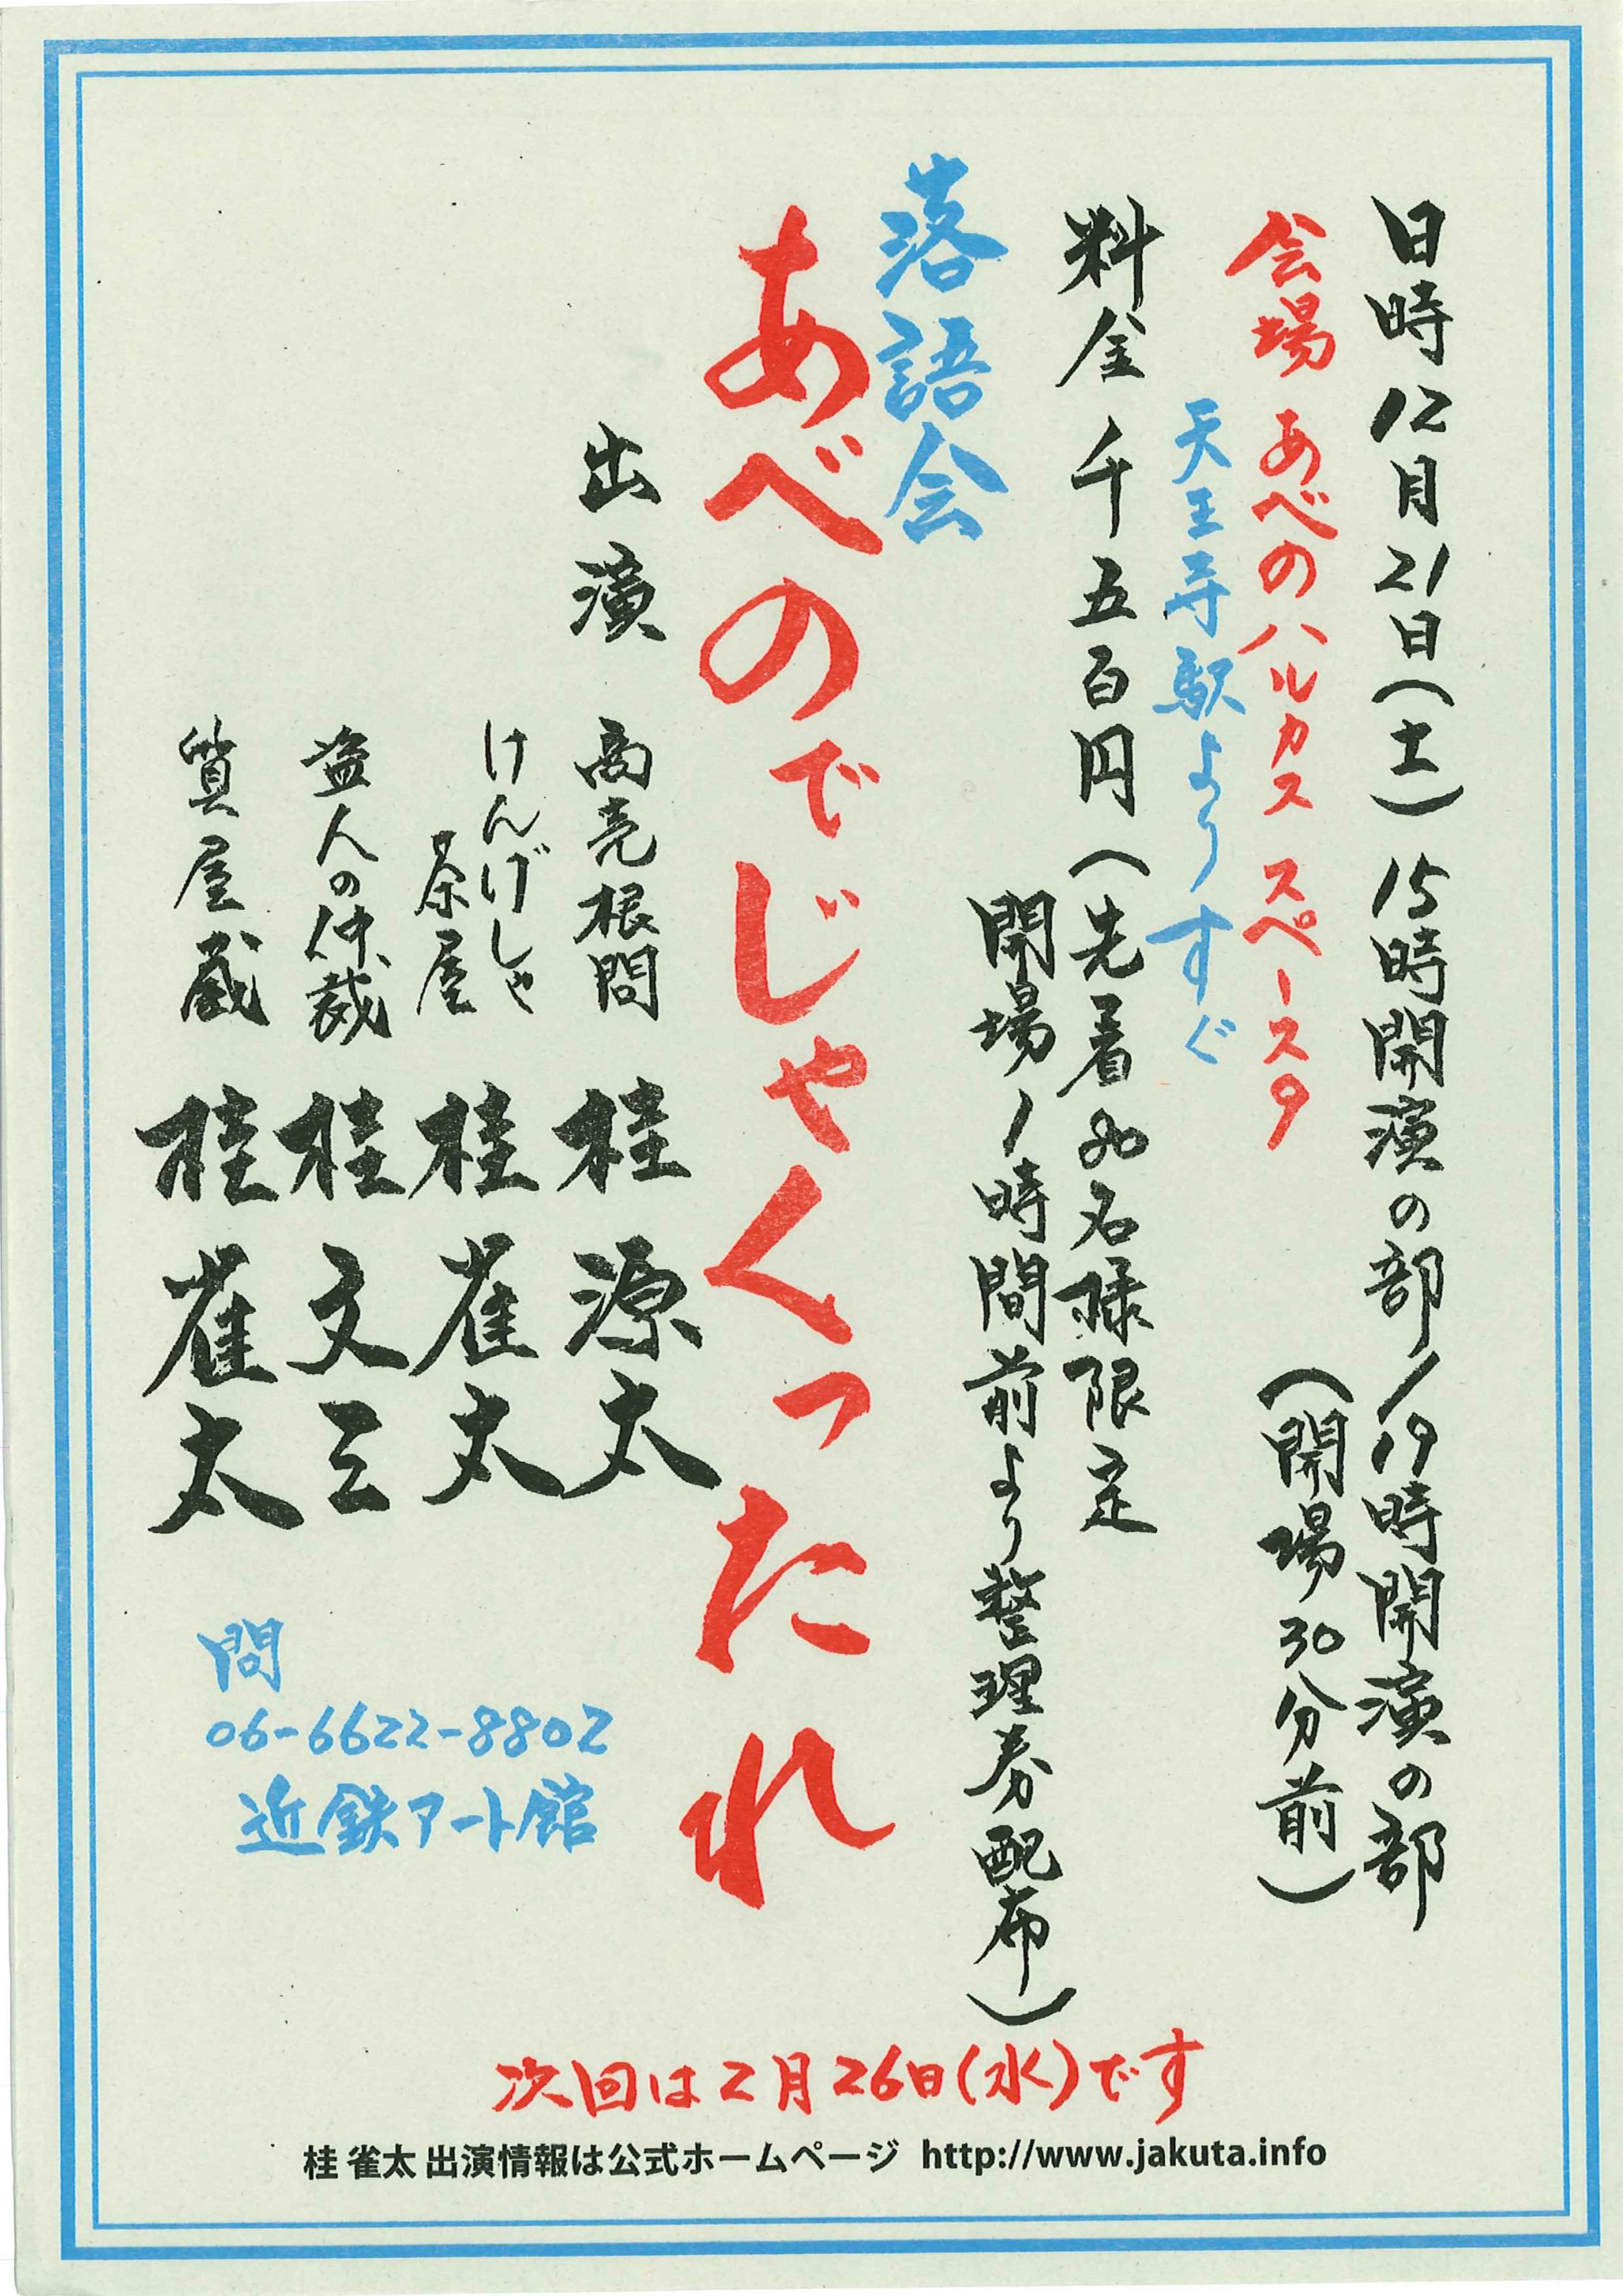 日時 12月21日(土) 15時開演の部/19時開演の部
(開場30分前)
会場 あべのハルカス スペース9
天王寺駅よりすぐ
料金 千五百円(先着80名様限定
開場1時間前より整理券配布)
落語会
あべのでじゃくったれ
出演
商売根問 桂 源太
けんげしゃ
茶屋 桂 雀太
盗人の仲裁 桂 文三
質屋蔵 桂 雀太
問
06-6622-8802
近鉄アート館
次回は2月26日(水)です
桂 雀太 出演情報は公式ホームページ http://www.jakuta.info